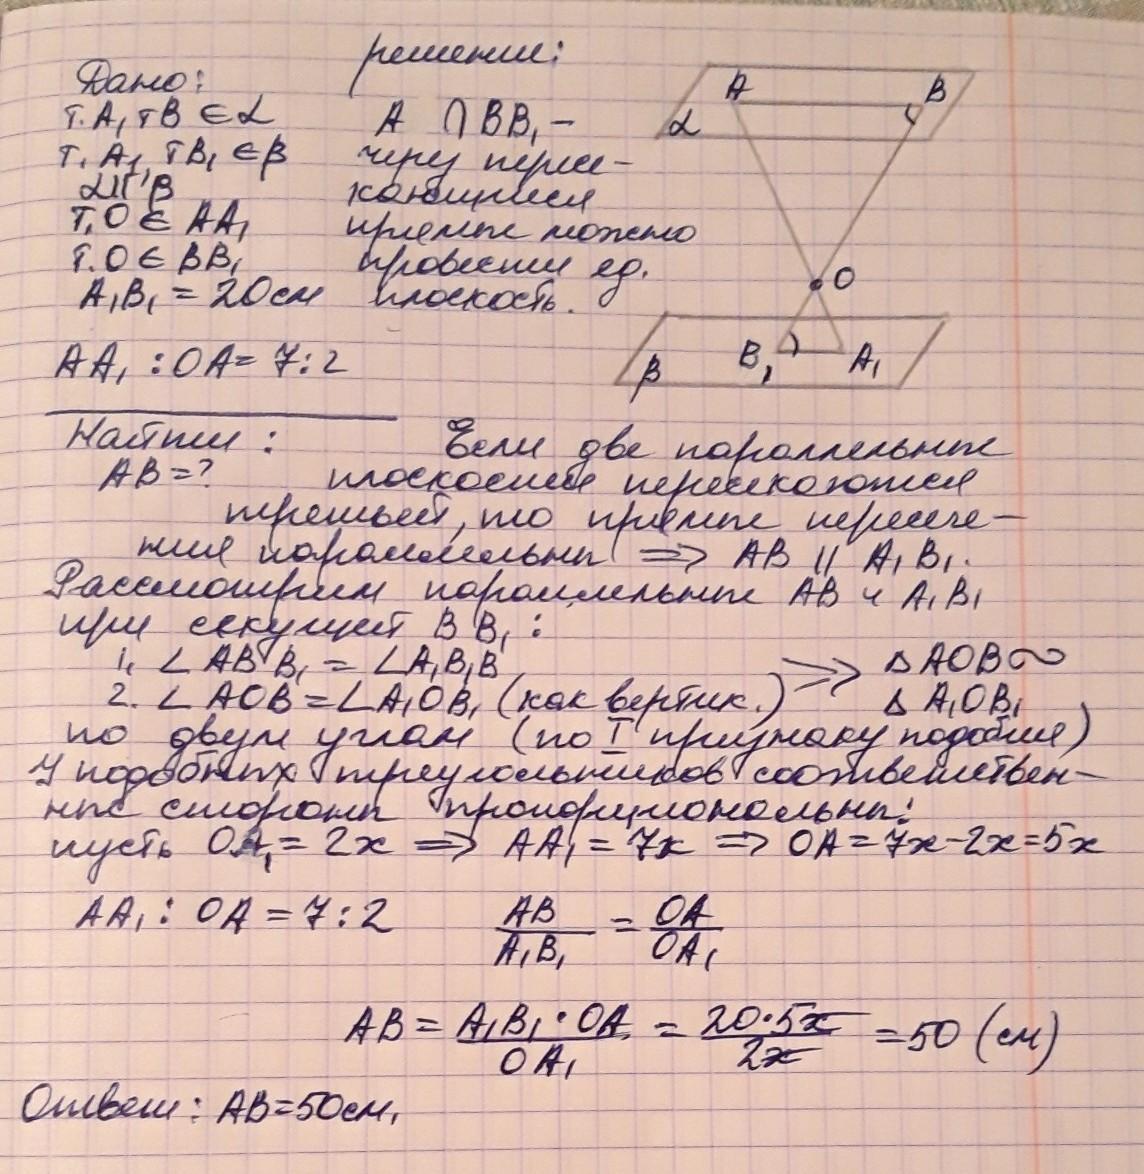 решение:
Дано:
т. A, т B ∈ α
A ∩ BB₁ –
т. A₁, т B₁ ∈ β
через пересе-
α || β
кающиеся
т. O ∈ AA₁
прямые можно
т. O ∈ BB₁
провести ед.
A₁B₁ = 20 см
плоскость.
AA₁ : OA = 7 : 2
A
B
α
O
B₁
A₁
β
Найти:
AB = ?
Если две параллельные
плоскости пересекаются
третьей, то прямые пересече-
ния параллельны ⇒ AB || A₁B₁.
Рассмотрим параллельные AB и A₁B₁
при секущей BB₁:
1. ∠ABB₁ = ∠A₁B₁B
⇒ ΔAOB ∾
2. ∠AOB = ∠A₁OB₁ (как вертик.)
ΔA₁OB₁
по двум углам (по I признаку подобия)
У подобных треугольников соответствен-
ные стороны пропорциональны:
пусть OA₁ = 2x ⇒ AA₁ = 7x ⇒ OA = 7x - 2x = 5x
AA₁ : OA = 7 : 2
AB/A₁B₁ = OA/OA₁
AB = A₁B₁ · OA/OA₁ = 20 · 5x/2x = 50 (см)
Ответ: AB = 50 см.